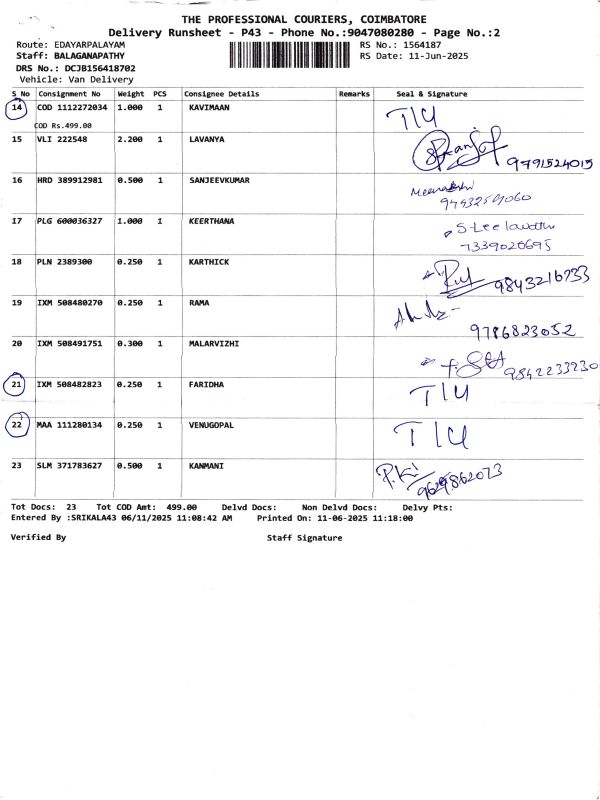 THE PROFESSIONAL COURIERS, COIMBATORE
Delivery Runsheet - P43 - Phone No.:9047080280 - Page No.:2
Route: EDAYARPALAYAM RS No.: 1564187
Staff: BALAGANAPATHY RS Date: 11-Jun-2025
DRS No.: DCJB156418702
Vehicle: Van Delivery
S No Consignment No Weight PCS Consignee Details Remarks Seal & Signature
14 COD 1112272034 1.000 1 KAVIMAAN T/U
COD Rs.499.00
15 VLI 222548 2.200 1 LAVANYA 9791524015
16 HRD 389912981 0.500 1 SANJEEVKUMAR
17 PLG 600036327 1.000 1 KEERTHANA S-Leelavathi
7339020695
18 PLN 2389300 0.250 1 KARTHICK 9843216733
19 IXM 508480270 0.250 1 RAMA
9786823052
20 IXM 508491751 0.300 1 MALARVIZHI
9842233230
21 IXM 508482823 0.250 1 FARIDHA T/U
22 MAA 111280134 0.250 1 VENUGOPAL T/U
23 SLM 371783627 0.500 1 KANMANI
9629862073
Tot Docs: 23 Tot COD Amt: 499.00 Delvd Docs: Non Delvd Docs: Delvy Pts:
Entered By :SRIKALA43 06/11/2025 11:08:42 AM Printed On: 11-06-2025 11:18:00
Verified By Staff Signature